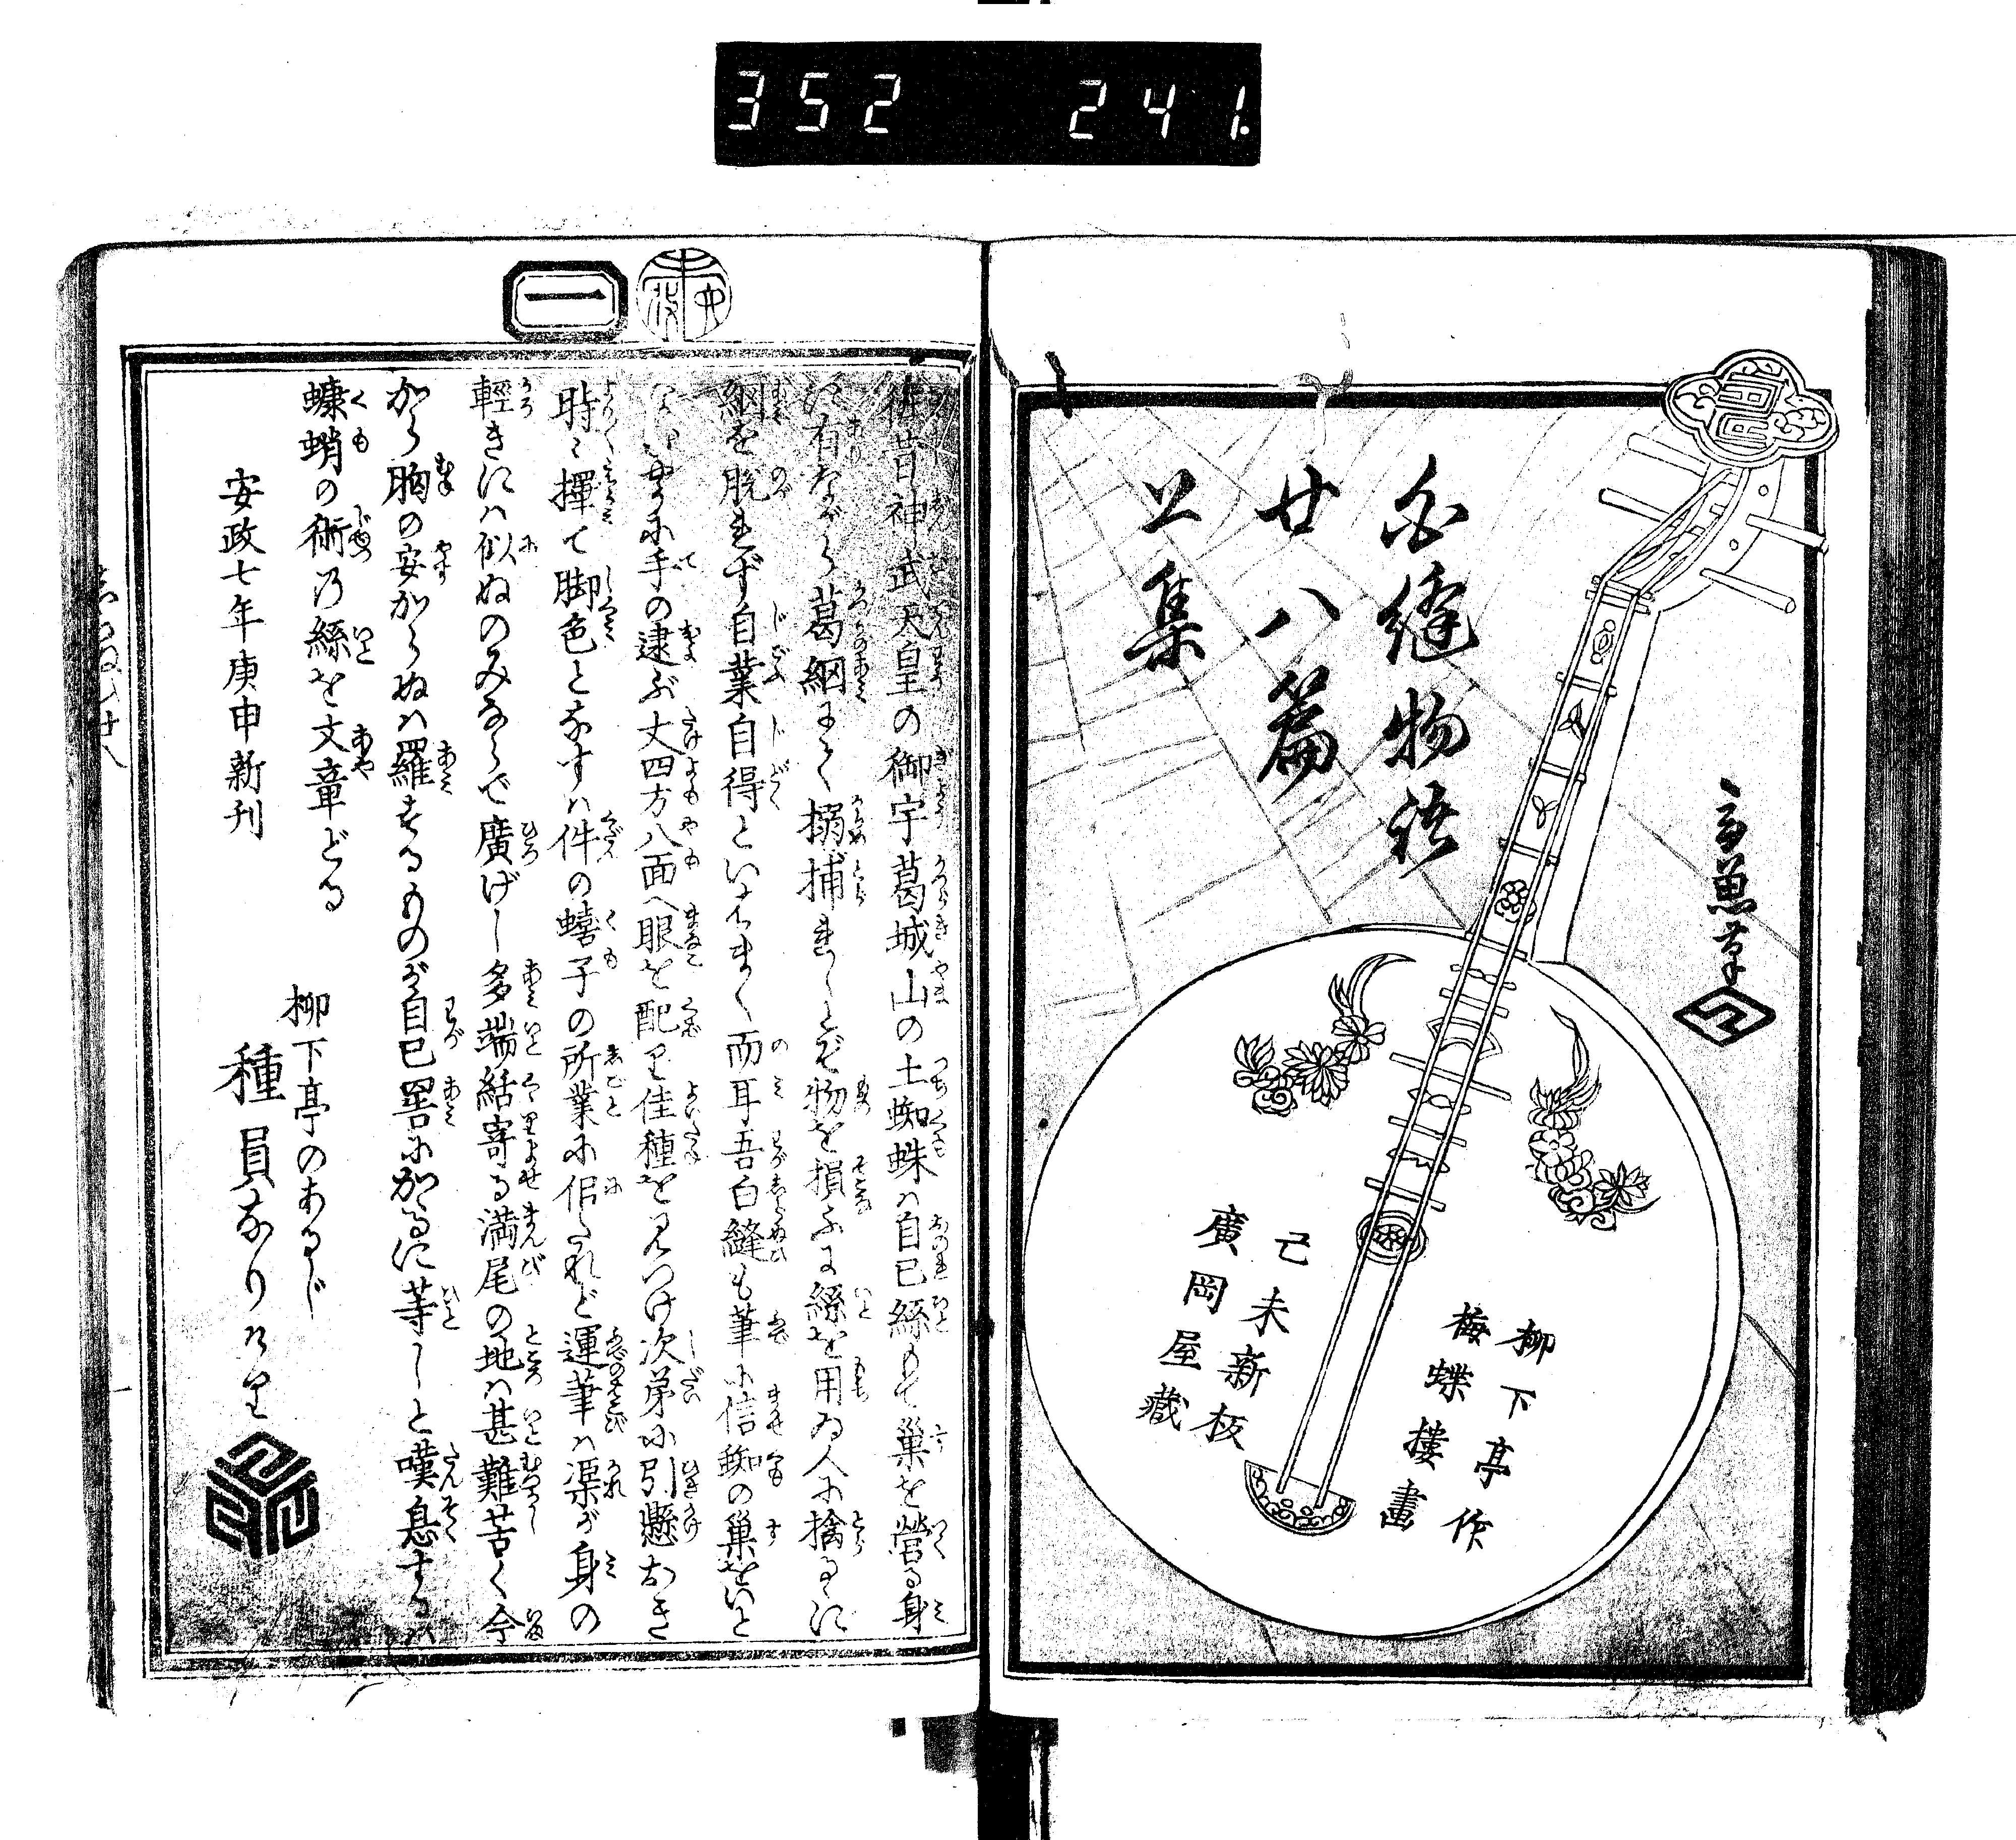 352 241.
白縫物語
廿八篇
上集
柳下亭作
梅蝶楼画
己未新板
廣岡屋蔵
一
往昔神武天皇の御宇葛城山の土蜘蛛ハ自己絲もて巣を営る身
に有ながら葛網にて搦捕れしとぞ物を損ふに絲を用ゐ人に擒るゝに
網を脱れず自業自得といはまく而耳吾白縫も筆に信蜘の巣をいと
手の逮ぶ丈四方八面へ眼を配り佳種を見つけ次第に引懸おき
時〻揮て脚色となすハ件の蟢子の所業に佀たれど運筆ハ渠が身の
輕きにハ似ぬのみならで廣げし多端結寄る満尾の地ハ甚難苦く今
から胸の安からぬハ羅するものが自己罟に加るに等しと嘆息するハ
蠊蛸の術の絲を文章どる
安政七年庚申新刊
柳下亭のあるじ
種員なりけり